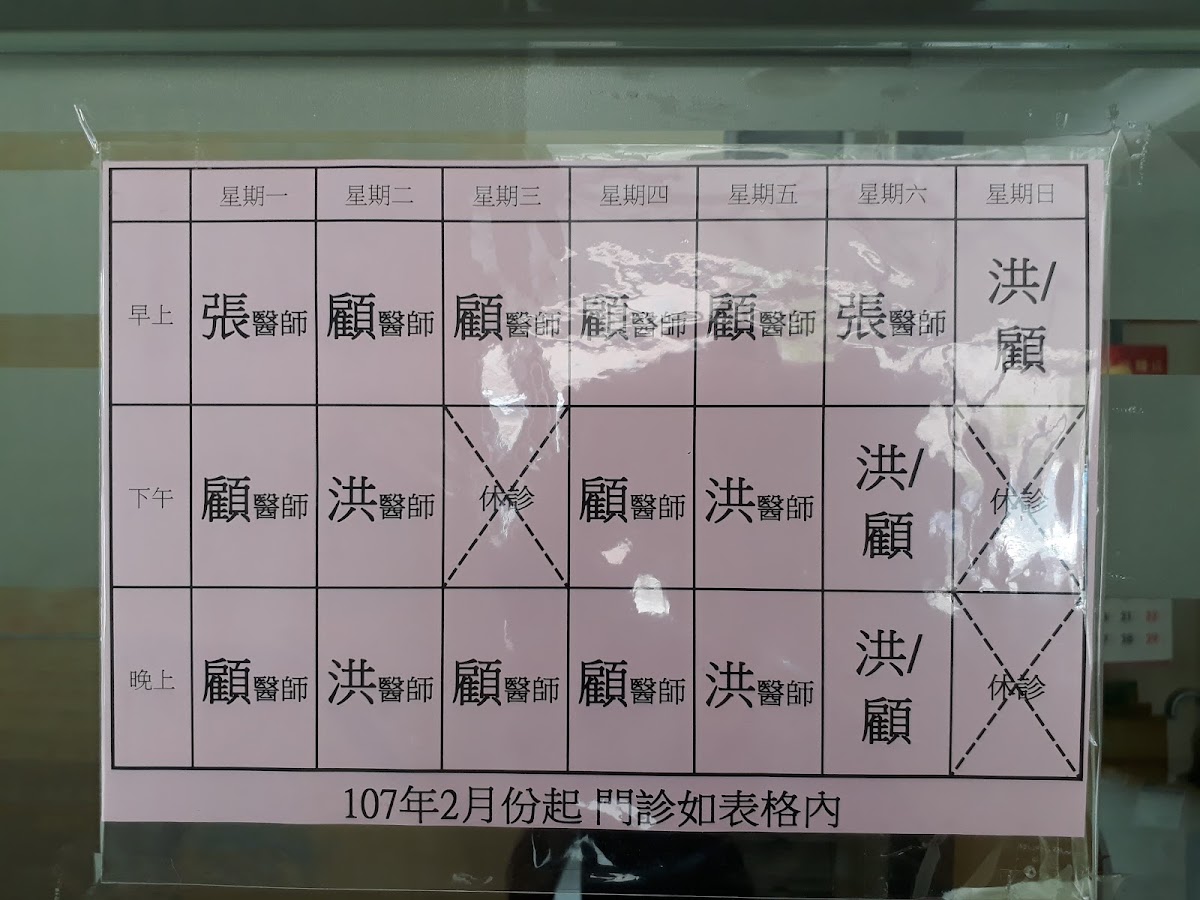 星期一 星期二 星期三 星期四 星期五 星期六 星期日
早上 張醫師 顧醫師 顧醫師 顧醫師 顧醫師 張醫師 洪/顧
下午 顧醫師 洪醫師 休診 顧醫師 洪醫師 洪/顧 休診
晚上 顧醫師 洪醫師 顧醫師 顧醫師 洪醫師 洪/顧 休診
107年2月份起 門診如表格內